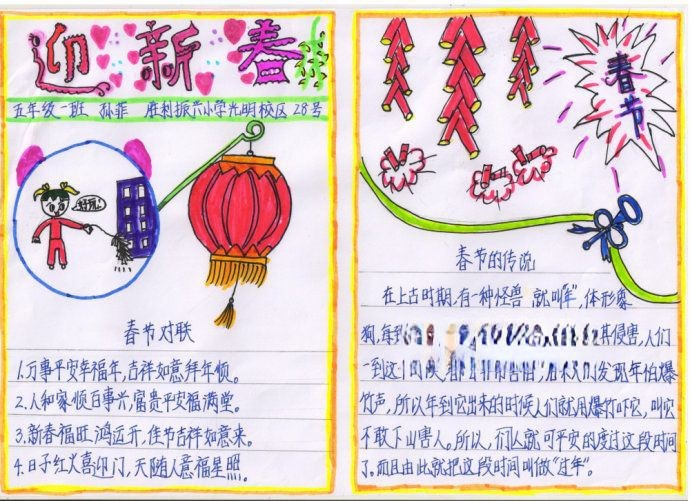 迎新春
五年级一班 孙菲 胜利振兴小学光明校区 28号
好玩!
春节对联
1.万事平安幸福年,吉祥如意拜年顺。
2.人和家顺百事兴,富贵平安福满堂。
3.新春福旺鸿运开,佳节吉祥如意来。
4.日子红火喜迎门,天随人意福星照。
春节
春节的传说
在上古时期,有一种怪兽 就叫"年",体形象
狗,每到 其侵害,人们
一到这 后来人们发现年怕爆
竹声,所以年到它出来的时候人们就用爆竹吓它,叫它
不敢下山害人。所以,们从就可平安的度过这段时间
了。而且由此就把这段时间叫做"过年"。